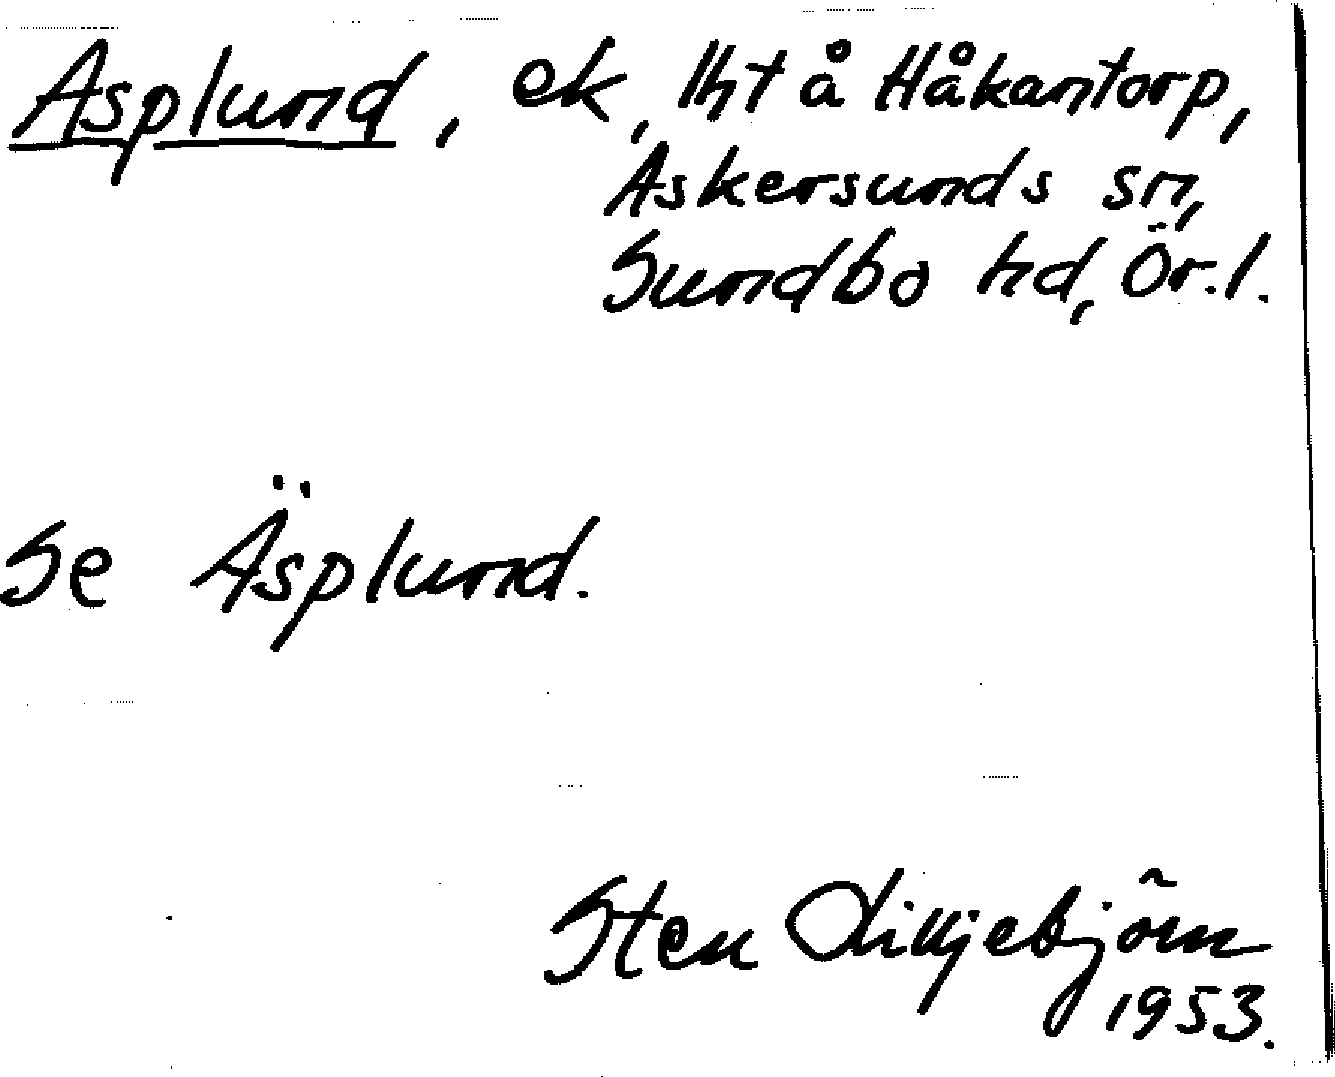 Asplund, ek, lht å Håkantorp,
Askersunds sn,
Sundbo hd, Ör.l.
Se Äsplund.
Sten
1953.